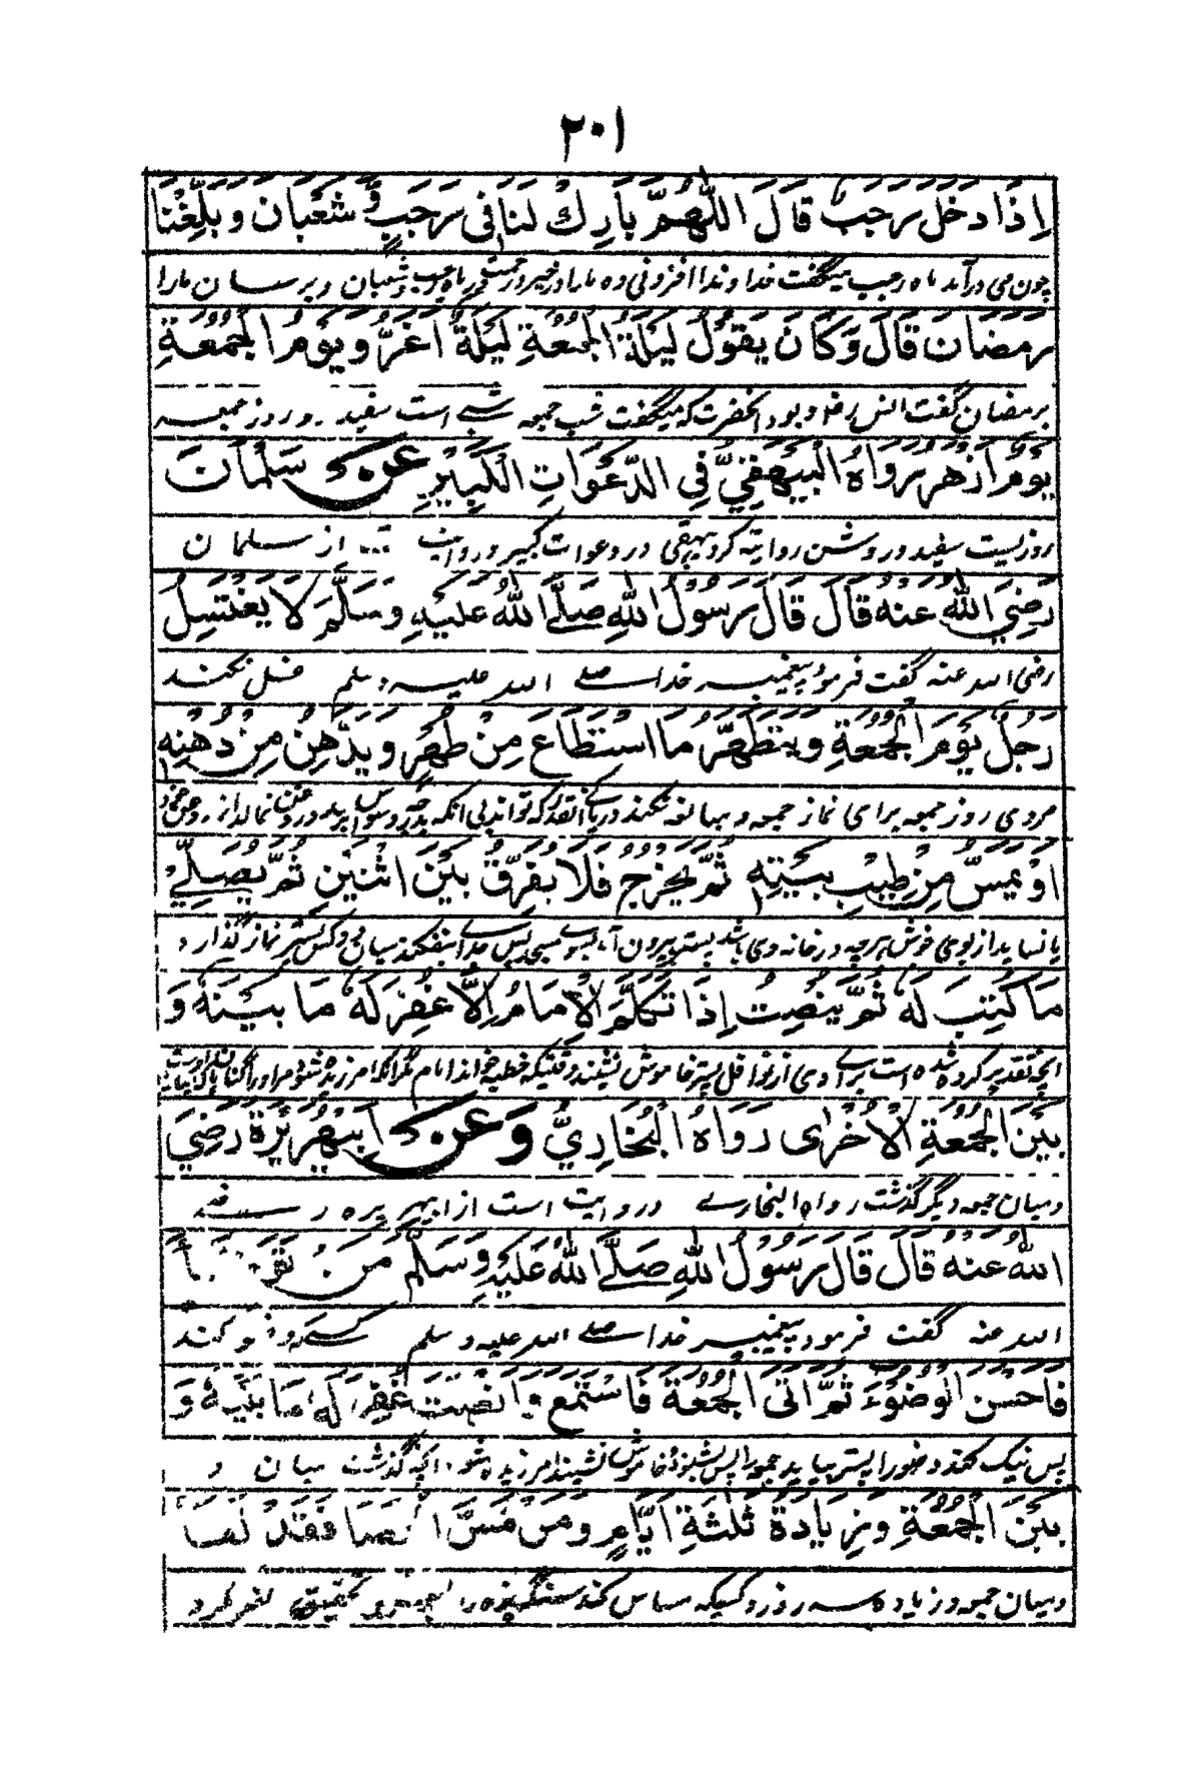 ٢٠١
إِذَا دَخَلَ رَجَبُ قَالَ اللّٰهُمَّ بَارِكْ لَنَا فِى رَجَبٍ وَّ شَعْبَانَ وَبَلِّغْنَا
چون می درآمد ماه رجب میگفت خداوندا افزونی ده مارا در خیر و رحمت در ماه رجب و شعبان و برسان مارا
رَمَضَانَ قَالَ وَكَانَ يَقُوْلُ لَيْلَةُ الْجُمُعَةِ لَيْلَةٌ اَغَرُّ وَيَوْمُ الْجُمُعَةِ
برمضان گفت انس رض و بود آنحضرت که میگفت شب جمعه شبے است سفید و روز جمعه
يَوْمٌ اَزْهَرُ رَوَاهُ الْبَيْهَقِيُّ فِي الدَّعَوَاتِ الْكَبِيْرِ عَنْ سَلْمَانَ
روزیست سفید و روشن روایت کرد بیهقی در دعوات کبیر و روایت از سلمان
رَضِيَ اللّٰهُ عَنْهُ قَالَ قَالَ رَسُوْلُ اللّٰهِ صَلَّے اللّٰهُ عَلَيْهِ وَسَلَّمَ لَا يَغْتَسِلُ
رضی الله عنه گفت فرمود پیغمبر خدا صلے الله علیه وسلم غسل نکند
رَجُلٌ يَوْمَ الْجُمُعَةِ وَيَتَطَهَّرُ مَا اسْتَطَاعَ مِنْ طُهْرٍ وَيَدَّهِنُ مِنْ دُهْنِهِ
مردی روز جمعه برای نماز جمعه و مبالغه نکند در پاکی آنقدر که تواند
اَوْ يَمَسُّ مِنْ طِيْبِ بَيْتِهِ ثُمَّ يَخْرُجُ فَلَا يُفَرِّقُ بَيْنَ اثْنَيْنِ ثُمَّ يُصَلِّيْ
یا نساید از بوی خوش هرچه در خانه وی باشد پستر بیرون آید بسوے مسجد پس جدا نیفگند میان دو کس پستر نماز گذارد
مَا كُتِبَ لَهُ ثُمَّ يُنْصِتُ اِذَا تَكَلَّمَ الْاِمَامُ اِلَّا غُفِرَ لَهُ مَا بَيْنَهُ وَ
آنچه تقدیر کرده شده است براے وی از نوافل پستر خاموش نشیند وقتیکه خطبه خواند امام مگر آنکه آمرزیده شود مر او را گناهان
بَيْنَ الْجُمُعَةِ الْاُخْرٰى رَوَاهُ الْبُخَارِيُّ وَعَنْ اَبِيْهُرَيْرَةَ رَضِيَ
ومیان جمعه دیگر گذشت رواه البخارے و روایت است از ابیهریره رضی
اللّٰهُ عَنْهُ قَالَ قَالَ رَسُوْلُ اللّٰهِ صَلَّے اللّٰهُ عَلَيْهِ وَسَلَّمَ مَنْ تَوَضَّأَ
الله عنه گفت فرمود پیغمبر خدا صلے الله علیه وسلم کسیکه وضو کند
فَاَحْسَنَ الْوُضُوْءَ ثُمَّ اَتَى الْجُمُعَةَ فَاسْتَمَعَ وَاَنْصَتَ غُفِرَ لَهُ مَا بَيْنَهُ وَ
پس نیک کند وضو را پستر بیاید جمعه را پس بشنود و خاموش نشیند آمرزیده شود آنچه گذشت میان و
بَيْنَ الْجُمُعَةِ وَزِيَادَةُ ثَلٰثَةِ اَيَّامٍ وَمَنْ مَسَّ الْحَصَا فَقَدْ لَغَا
ومیان جمعه و زیاده سه روز و کسیکه مساس کند سنگریزه را تحقیق لغو کرد